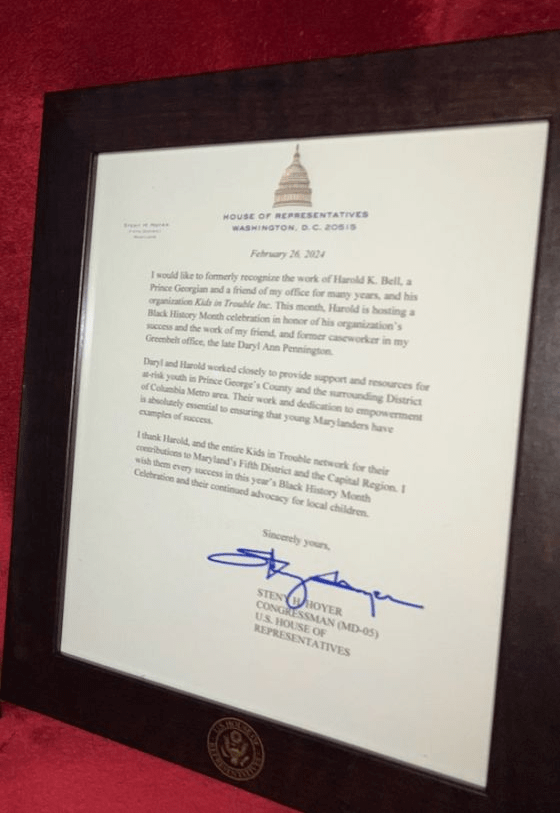 HOUSE OF REPRESENTATIVES
WASHINGTON, D. C. 20515
STENY H. HOYER
FIFTH DISTRICT
MARYLAND
February 26, 2024
I would like to formerly recognize the work of Harold K. Bell, a
Prince Georgian and a friend of my office for many years, and his
organization Kids in Trouble Inc. This month, Harold is hosting a
Black History Month celebration in honor of his organization's
success and the work of my friend, and former caseworker in my
Greenbelt office, the late Daryl Ann Pennington.
Daryl and Harold worked closely to provide support and resources for
at-risk youth in Prince George's County and the surrounding District
of Columbia Metro area. Their work and dedication to empowerment
is absolutely essential to ensuring that young Marylanders have
examples of success.
I thank Harold, and the entire Kids in Trouble network for their
contributions to Maryland's Fifth District and the Capital Region. I
wish them every success in this year's Black History Month
Celebration and their continued advocacy for local children.
Sincerely yours,
Steny Hoyer
STENY H. HOYER
CONGRESSMAN (MD-05)
U.S. HOUSE OF
REPRESENTATIVES
U.S. HOUSE OF
REPRESENTATIVES